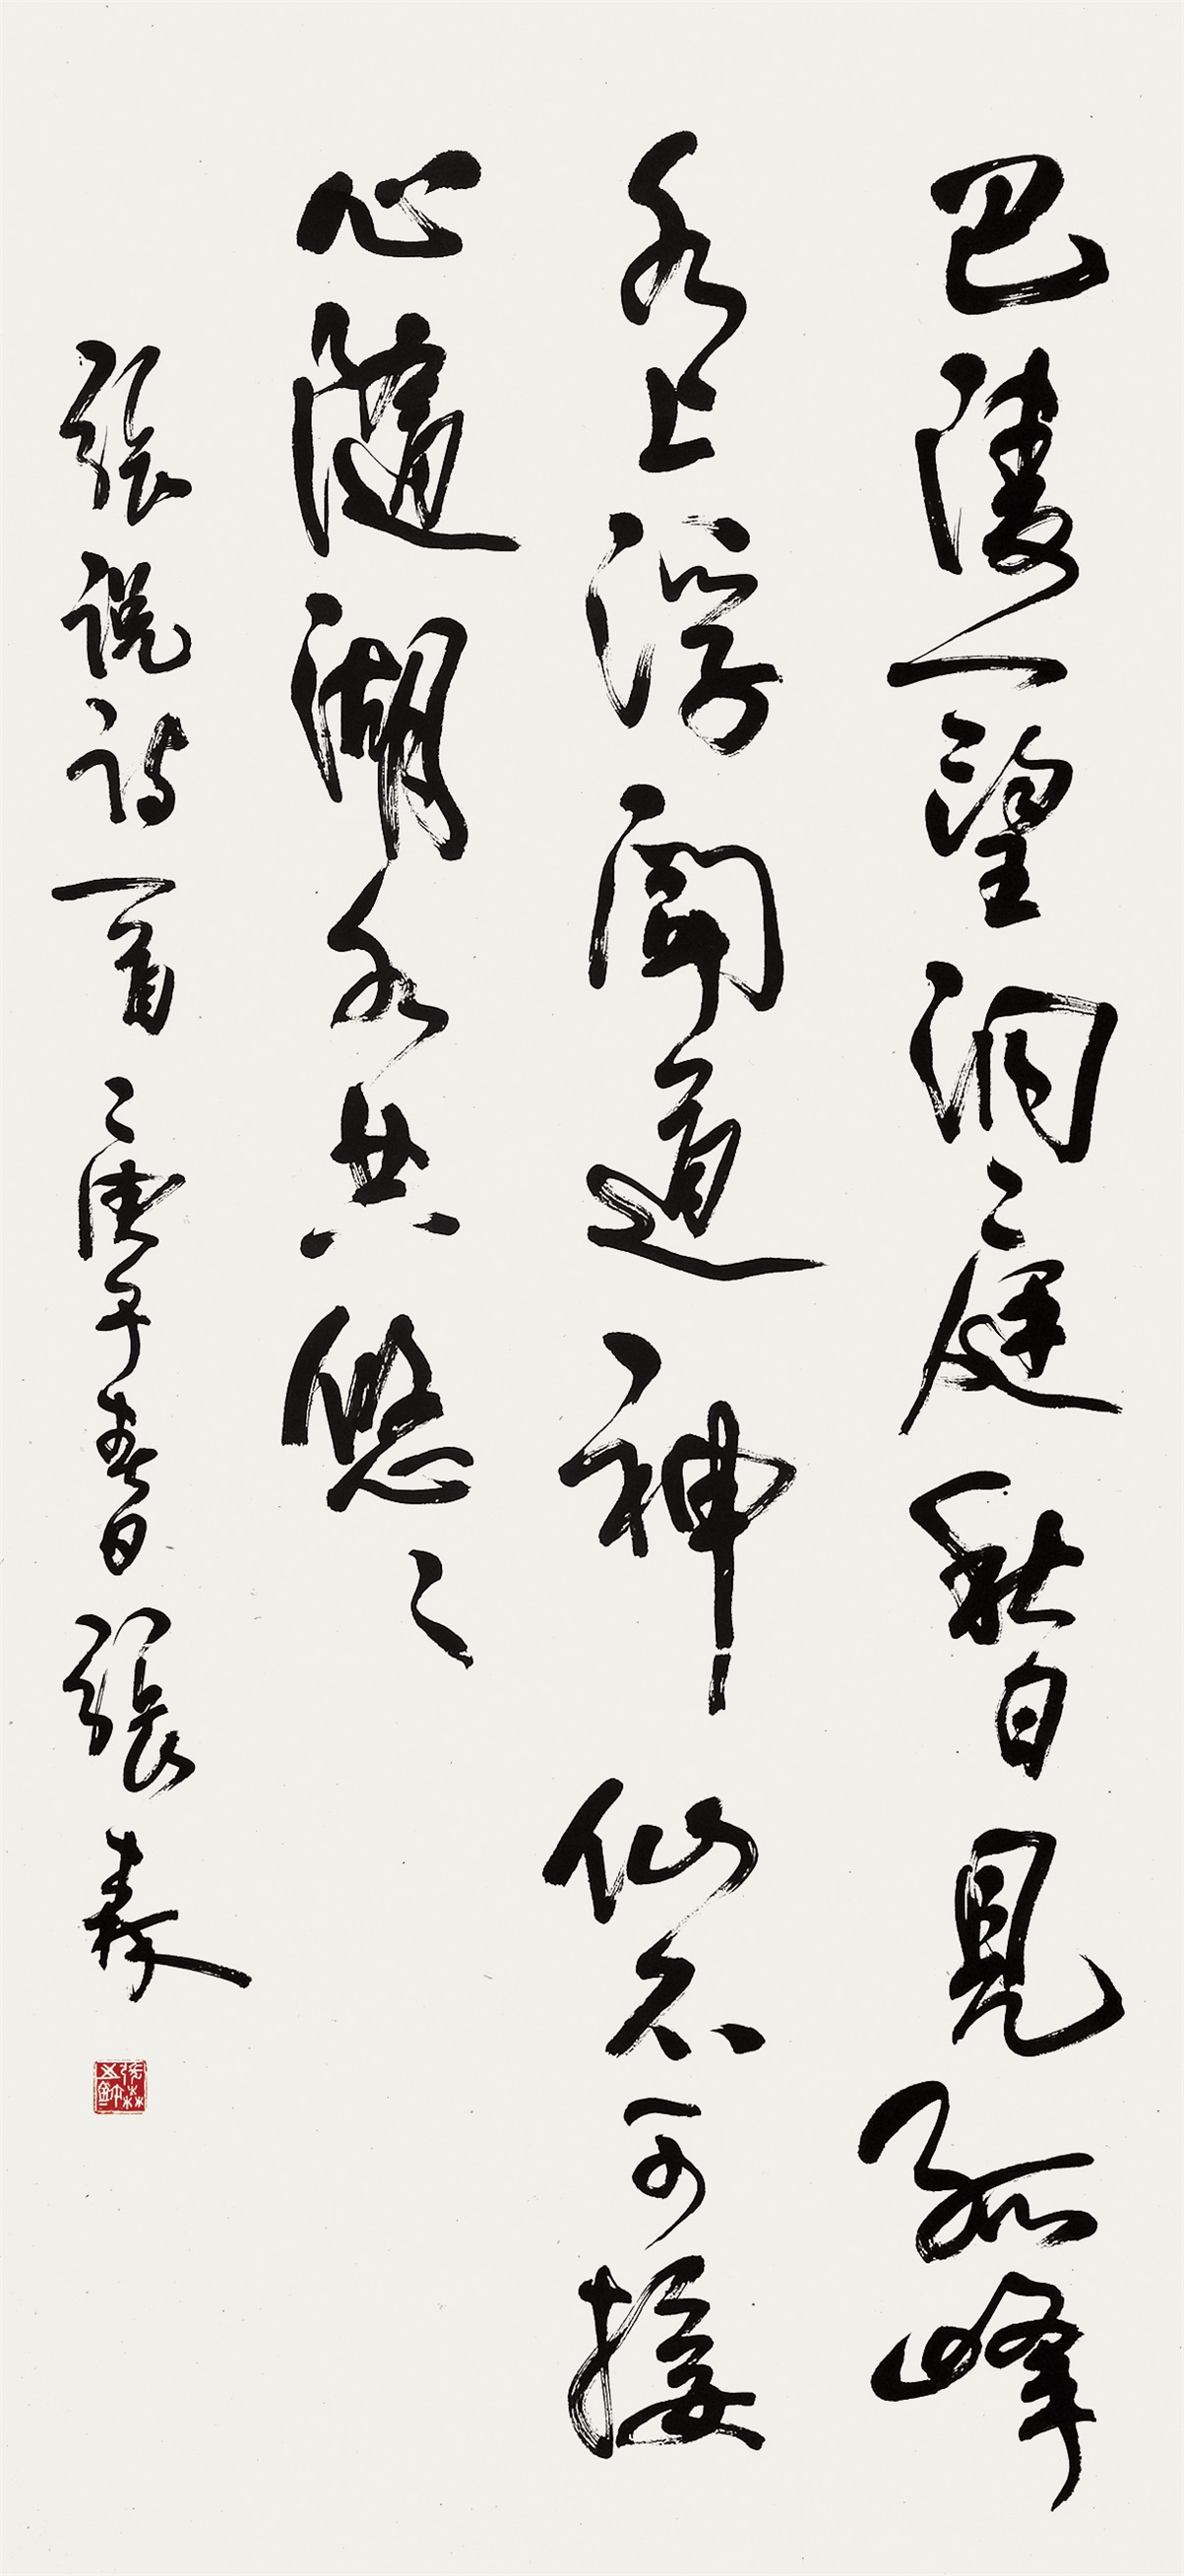 巴陵一望洞庭秋日見孤峰
水上浮聞道神仙不可接
心隨湖水共悠々
張說詩一首庚子春日張森
張森